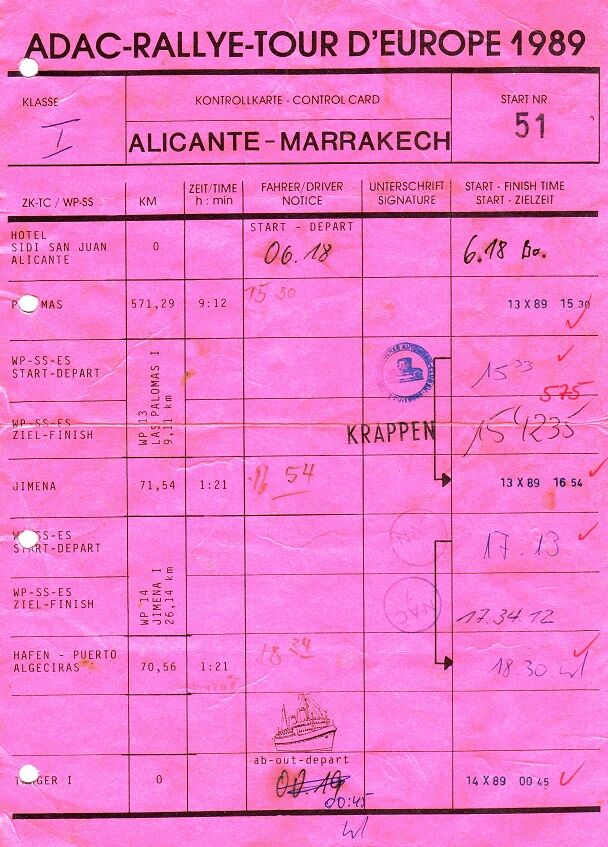 ADAC-RALLYE-TOUR D'EUROPE 1989
KLASSE
I
KONTROLLKARTE - CONTROL CARD
ALICANTE - MARRAKECH
START NR.
51
ZK-TC / WP-SS
KM
ZEIT/TIME
h : min
FAHRER/DRIVER
NOTICE
UNTERSCHRIFT
SIGNATURE
START - FINISH TIME
START - ZIELZEIT
HOTEL
SIDI SAN JUAN
ALICANTE
0
START - DEPART
06.18
6.18
MAS
571,29
9:12
15 30
13 X 89 15.30
WP-SS-ES
START-DEPART
WP 13
LAS PALOMAS I
9,11 km
15 33
575
WP-SS-ES
ZIEL-FINISH
KRAPPEN
JIMENA
71,54
1:21
54
13 X 89 16 54
SS-ES
START-DEPART
WP 14
JIMENA I
26,14 km
17.13
WP-SS-ES
ZIEL-FINISH
17.34.12
HAFEN - PUERTO
ALGECIRAS
70,56
1:21
18 24
18.30
ab-out-depart
TANGER I
0
00.19
00:45
14 X 89 00 45